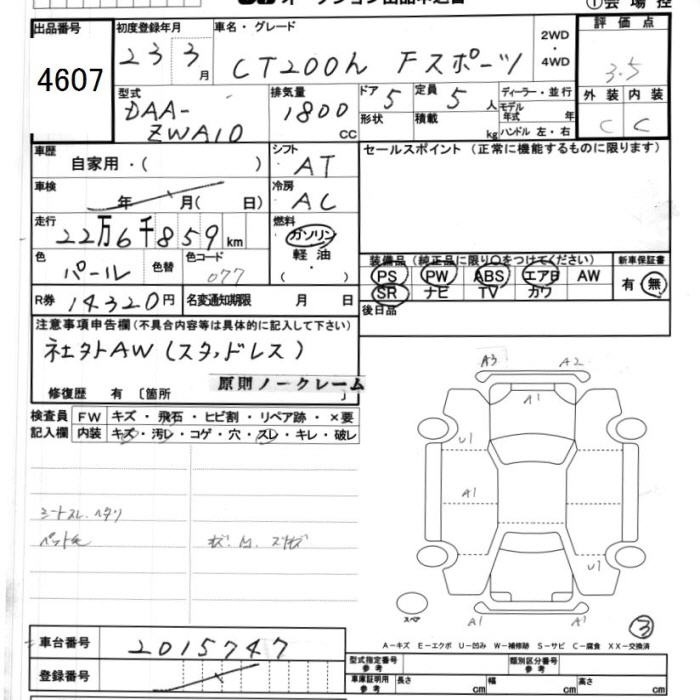 オークション出品申込書 ①会場控
出品番号 初度登録年月 車名・グレード 2WD・4WD 評価点
4607 23 3月 CT200h Fスポーツ 3.5
型式 排気量 ドア 定員 ディーラー・並行 外装 内装
DAA-ZWA10 1800cc 5 5人 モデル年式 年 C C
形状 積載 kg ハンドル 左・右
車歴 自家用・( ) シフト AT セールスポイント(正常に機能するものに限ります)
車検 年 月( 日) 冷房 AC
走行 22万6千859km 燃料 ガソリン 軽油 ( ・ )
色 パール 色替 色コード 077
装備品(純正品に限り○をつけてください) 新車保証書
PS PW ABS エアB AW 有・無
SR ナビ TV カワ
R券 14320円 名変通知期限 月 日 後日品
注意事項申告欄(不具合内容等は具体的に記入して下さい)
社外AW(スタッドレス)
修復歴 有〔箇所 〕 原則ノークレーム
検査員記入欄 FW キズ・飛石・ヒビ割・リペア跡・×要
内装 キズ・汚レ・コゲ・穴・スレ・キレ・破レ
シートスレ.ヘタリ
A3 A2
A1
U1
A1
U1
A1 A1
スペア
③
A-キズ E-エクボ U-凹み W-補修跡 S-サビ C-腐食 XX-交換済
車台番号 2015747
登録番号
型式指定番号 参考 類別区分番号 参考
車庫証明用 参考 長さ cm 幅 cm 高さ cm